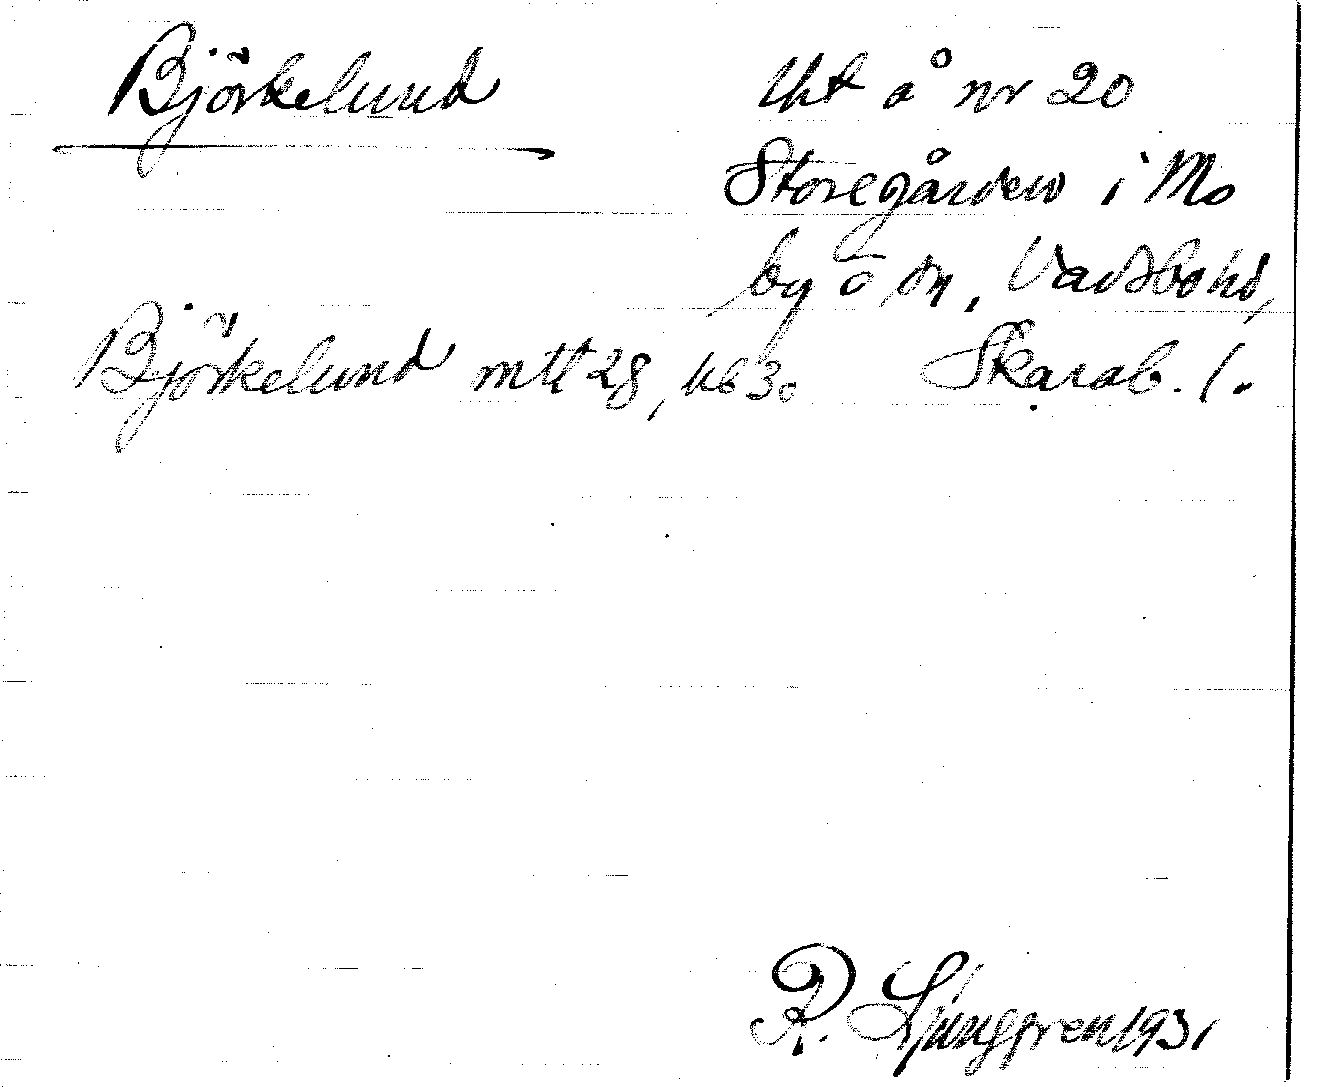 Björkelund
Uht å nr 20
Storegården i Mo
by o sn, Vadsbo hd,
Björkelund mtl 28, Ub 30
Skarab. l.
R. Ljunggren 1931